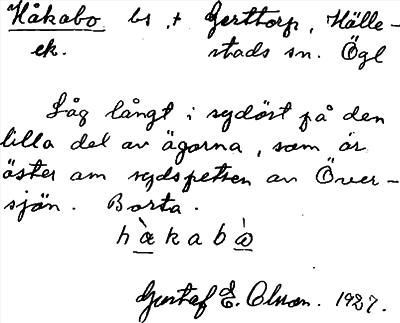 Håkabo bs , t Gerttorp, Hälle-
ek. stads sn. Ögl
Låg långt i sydöst på den
lilla del av ägorna, som är
öster om sydspetsen av Över-
sjön. Borta.
h à k a b ò
Gustaf E. Olson. 1927.